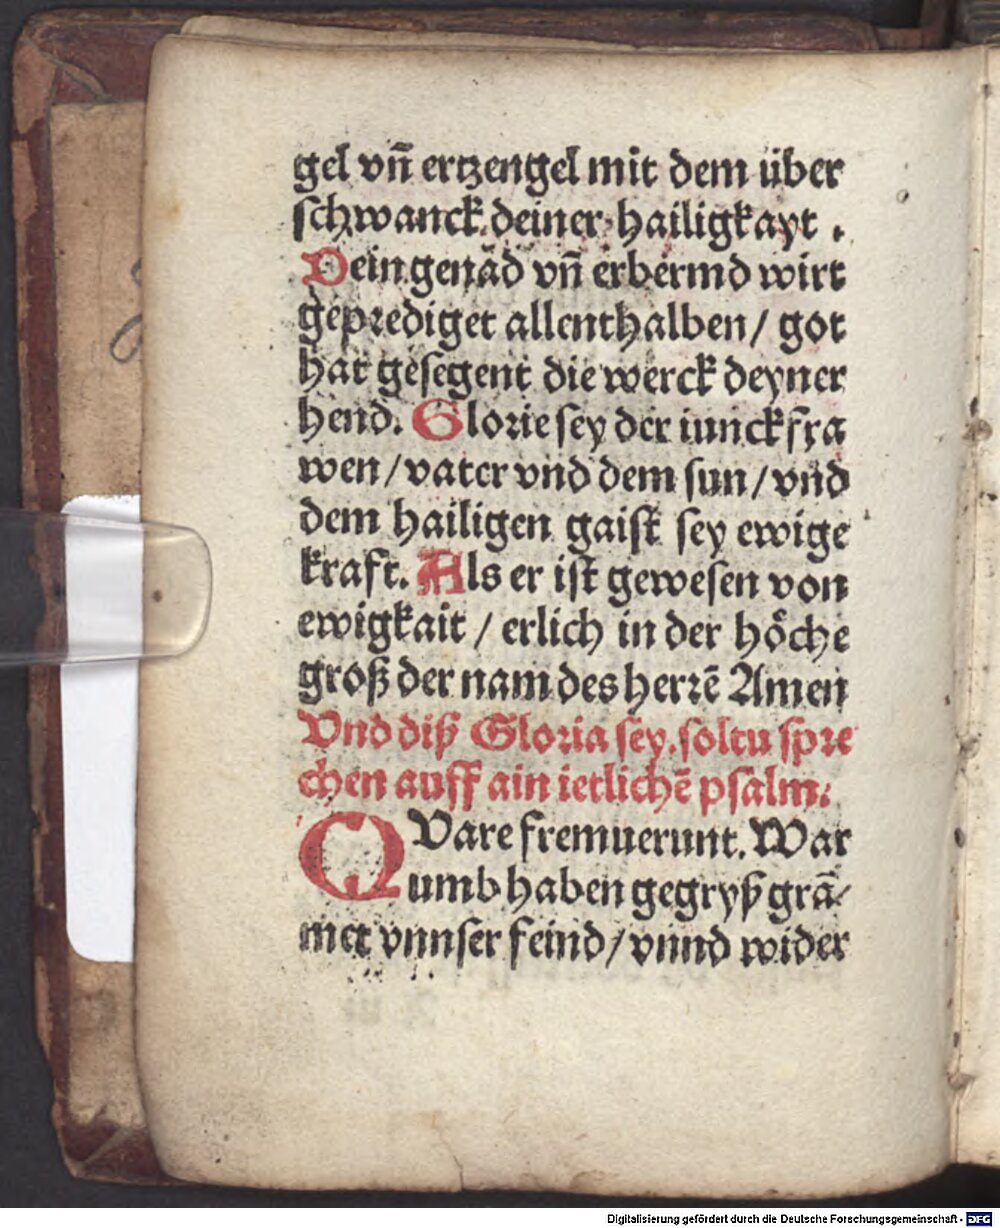 gel vn̄ ertzengel mit dem über
schwanck deiner hailigkayt .
Dein genād vn̄ erbermd wirt
geprediget allenthalben/ got
hat gesegent die werck deyner
hend. Glorie sey der iunckfra
wen/vater vnd dem sun/vnd
dem hailigen gaist sey ewige
kraft. Als er ist gewesen von
ewigkait / erlich in der höche
groß der nam des herrē Amen
Vnd diß Gloria sey.soltu spre
chen auff ain ietlichē psalm.
QVare fremuerunt. War
umb haben gegryß grā-
met vnnser feind/vnnd wider
Digitalisierung gefördert durch die Deutsche Forschungsgemeinschaft - DFG